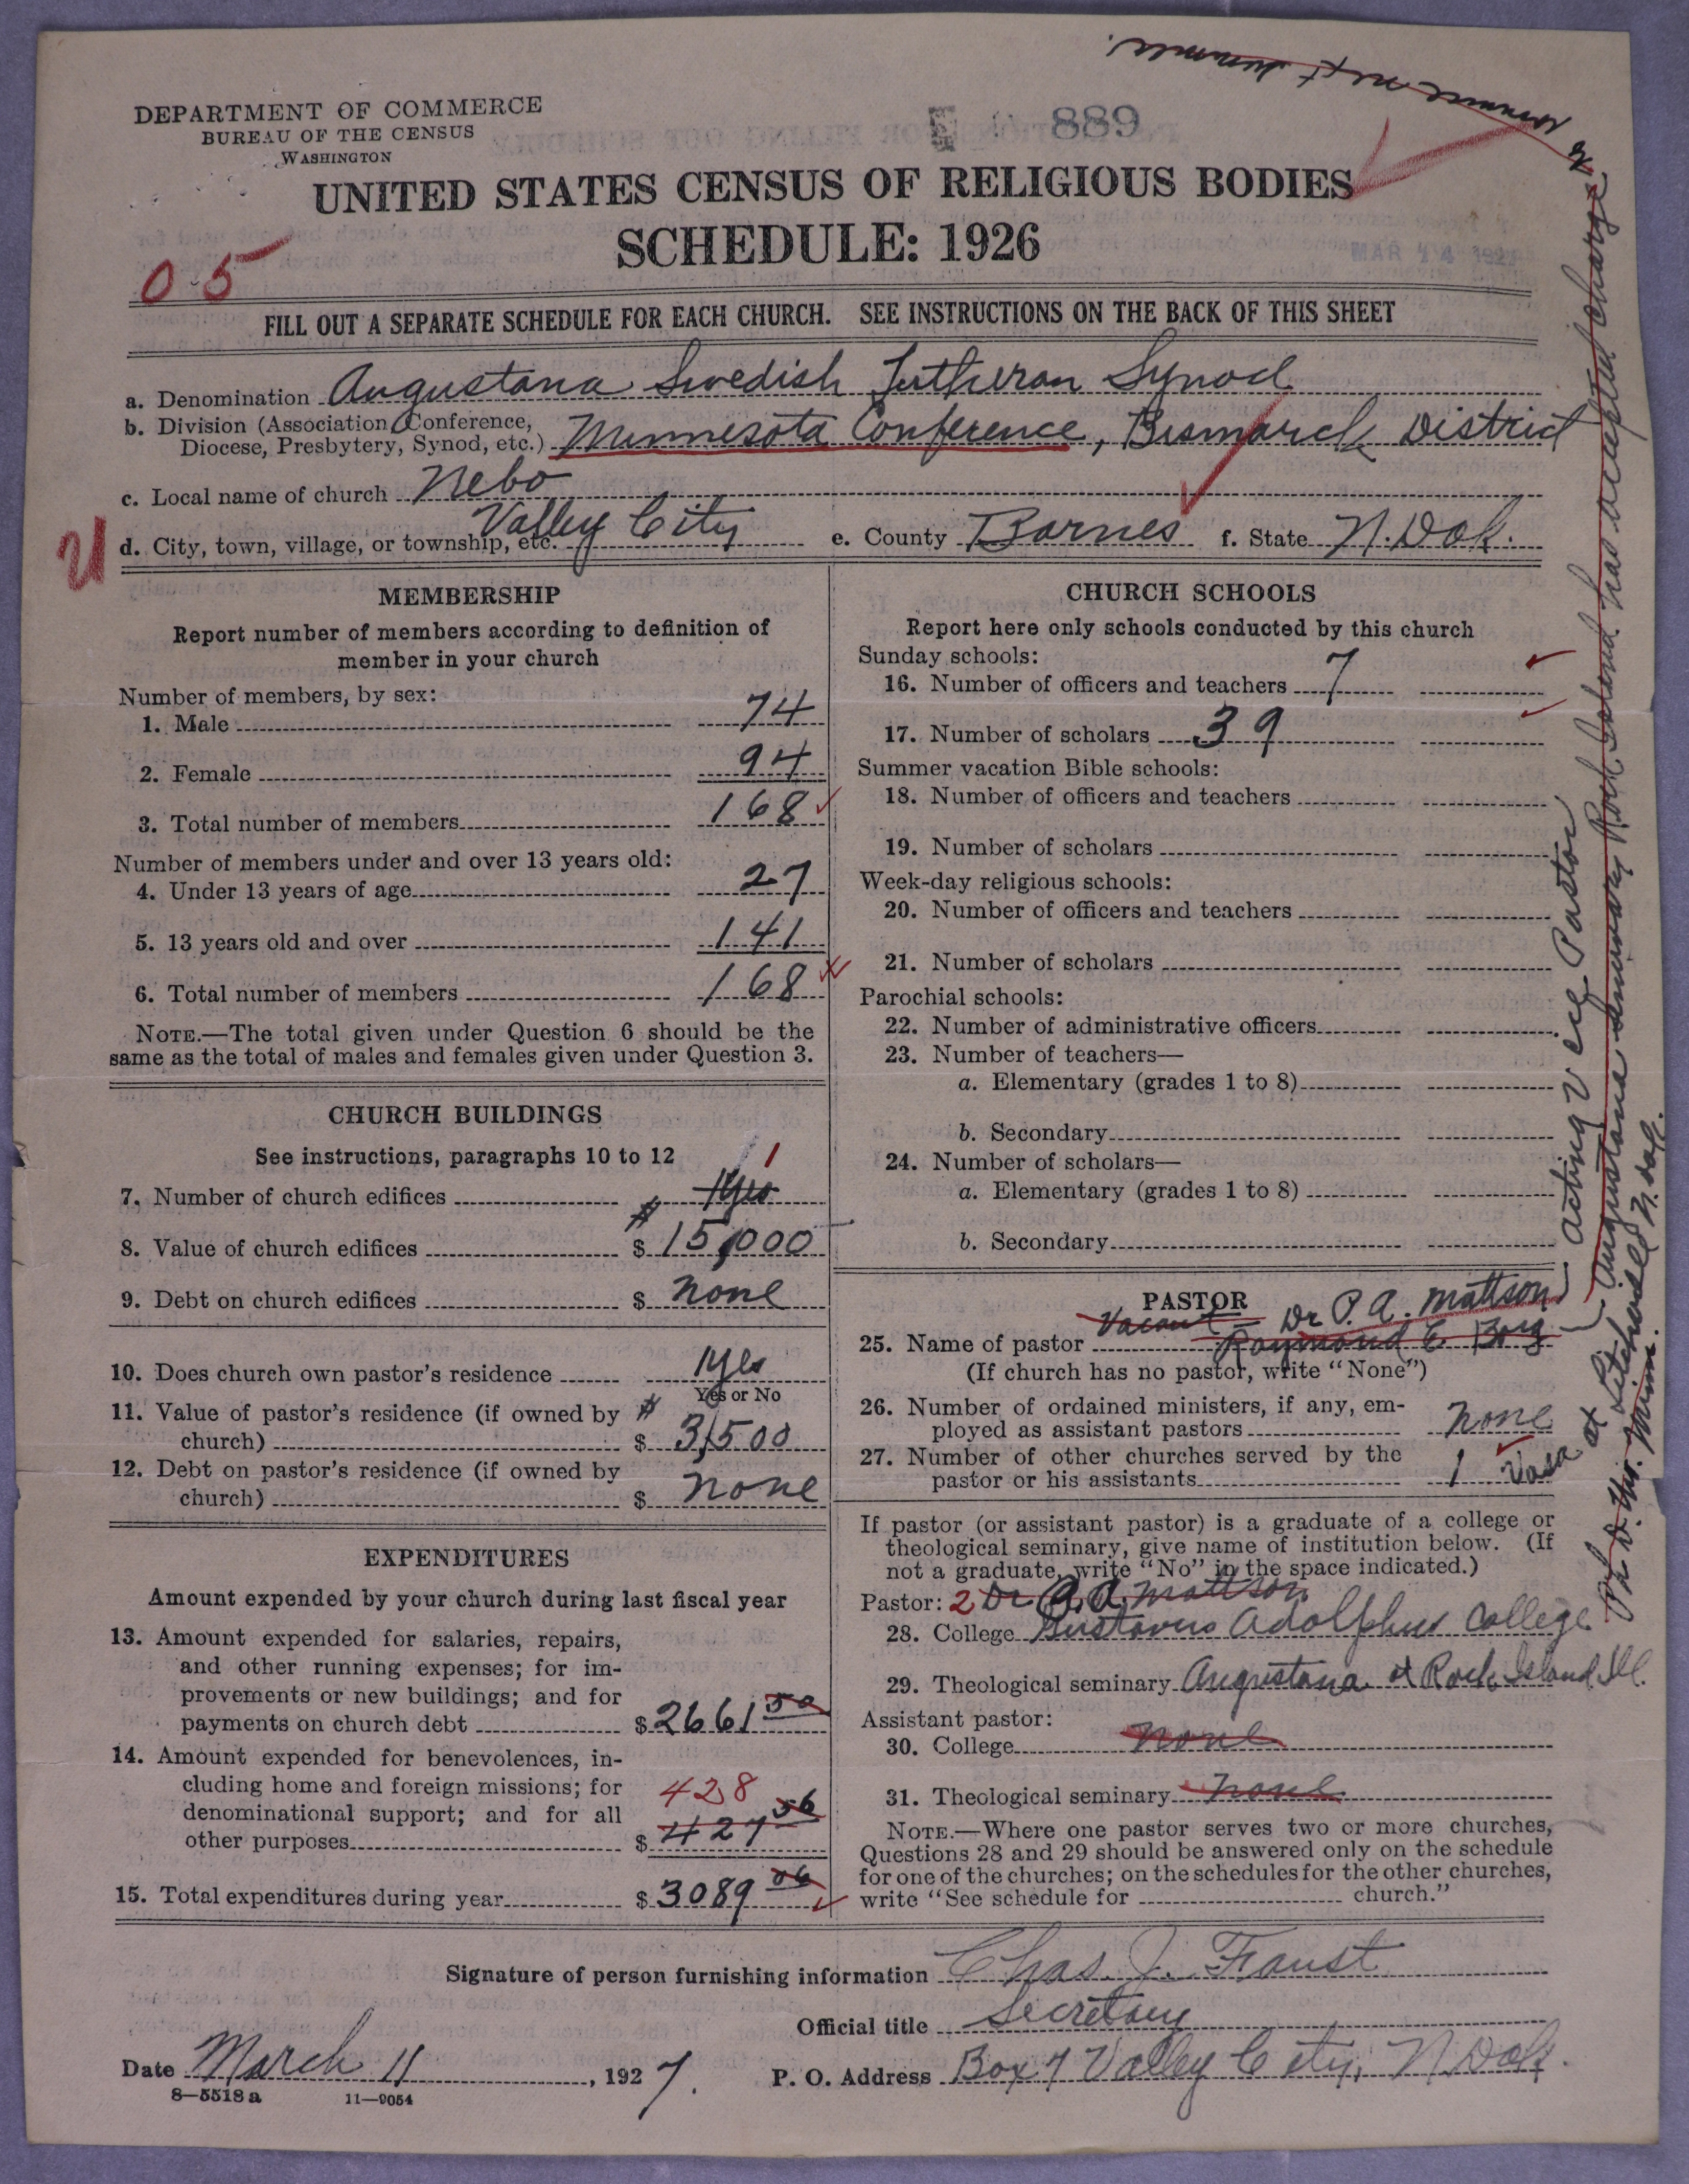 to commence next summer.
DEPARTMENT OF COMMERCE
BUREAU OF THE CENSUS
WASHINGTON
889
UNITED STATES CENSUS OF RELIGIOUS BODIES
SCHEDULE: 1926
MAR 14 192
0-5
FILL OUT A SEPARATE SCHEDULE FOR EACH CHURCH. SEE INSTRUCTIONS ON THE BACK OF THIS SHEET
a. Denomination Augustana Swedish Lutheran Synod
b. Division (Association Conference,
Diocese, Presbytery, Synod, etc.) Minnesota Conference, Bismarck District
c. Local name of church Nebo
U
d. City, town, village, or township, etc. Valley City e. County Barnes f. State N. Dak.
MEMBERSHIP
Report number of members according to definition of
member in your church
Number of members, by sex:
1. Male 74
2. Female 94
3. Total number of members 168
Number of members under and over 13 years old:
4. Under 13 years of age 27
5. 13 years old and over 141
6. Total number of members 168
NOTE.—The total given under Question 6 should be the
same as the total of males and females given under Question 3.
CHURCH BUILDINGS
See instructions, paragraphs 10 to 12
1
7. Number of church edifices Yes
8. Value of church edifices $ 15,000
9. Debt on church edifices $ none
10. Does church own pastor's residence Yes
Yes or No
11. Value of pastor's residence (if owned by
church) $ 3,500
12. Debt on pastor's residence (if owned by
church) $ none
EXPENDITURES
Amount expended by your church during last fiscal year
13. Amount expended for salaries, repairs,
and other running expenses; for im-
provements or new buildings; and for
payments on church debt $ 2661 50
14. Amount expended for benevolences, in-
cluding home and foreign missions; for
denominational support; and for all
428
other purposes $ 427 56
15. Total expenditures during year $ 3089 06
CHURCH SCHOOLS
Report here only schools conducted by this church
Sunday schools:
16. Number of officers and teachers 7
17. Number of scholars 39
Summer vacation Bible schools:
18. Number of officers and teachers
19. Number of scholars
Week-day religious schools:
20. Number of officers and teachers
21. Number of scholars
Parochial schools:
22. Number of administrative officers
23. Number of teachers—
a. Elementary (grades 1 to 8)
b. Secondary
24. Number of scholars—
a. Elementary (grades 1 to 8)
b. Secondary
PASTOR
Vacant = Dr P. A. Mattson
25. Name of pastor Raymond E. Borg
(If church has no pastor, write "None")
26. Number of ordained ministers, if any, em-
ployed as assistant pastors none
27. Number of other churches served by the
pastor or his assistants 1 Vasa at Litchville N. Dak.
If pastor (or assistant pastor) is a graduate of a college or
theological seminary, give name of institution below. (If
not a graduate, write "No" in the space indicated.)
Pastor: 2 Dr P. A. Mattson
28. College Gustavus Adolphus College
29. Theological seminary Augustana at Rock Island Ill.
Assistant pastor:
30. College none
31. Theological seminary none
NOTE.—Where one pastor serves two or more churches,
Questions 28 and 29 should be answered only on the schedule
for one of the churches; on the schedules for the other churches,
write "See schedule for church."
acting vice Pastor
Augustana Seminary Rock Island has accepted charge
Signature of person furnishing information Chas. J. Faust
Official title Secretary
Date March 11, 1927. P. O. Address Box 7 Valley City, N Dak.
8—5518 a 11—9054